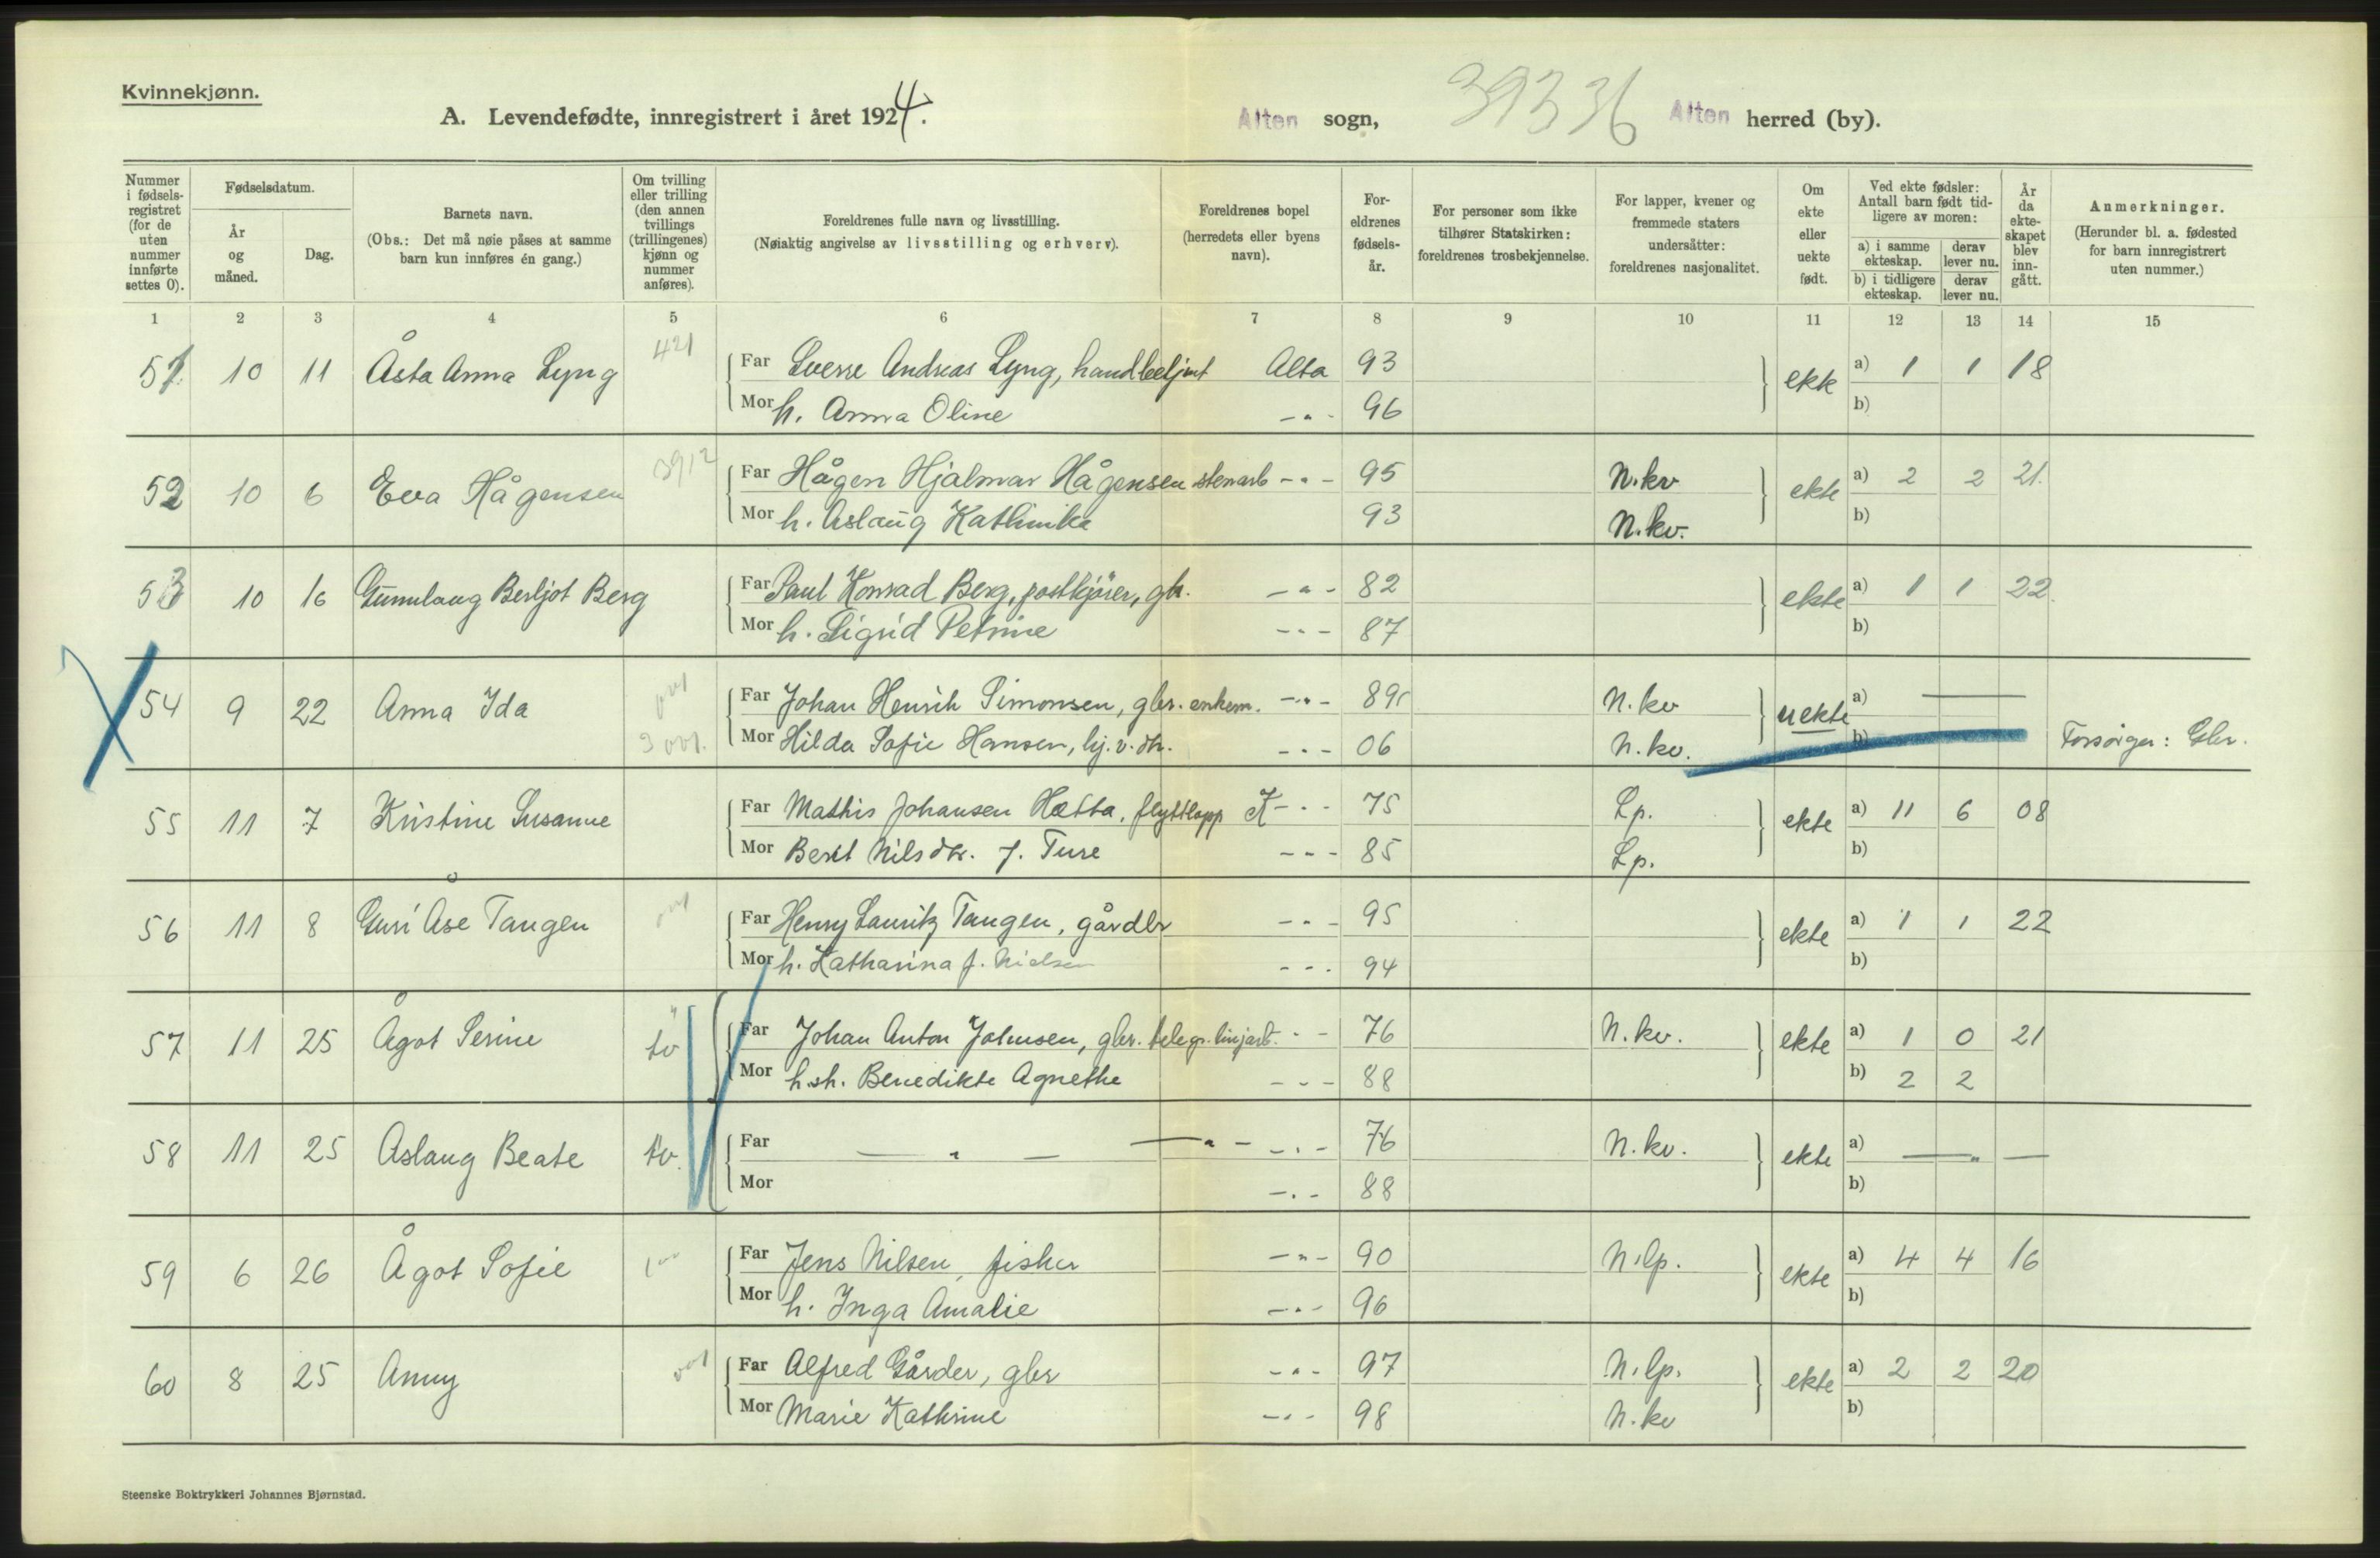 Kvinnekjønn.
A. Levendefødte, innregistrert i året 1924. Alten sogn, 39336 Alten herred (by).
Nummer i fødselsregistret (for de uten nummer innførte settes 0).
Fødselsdatum.
År og måned.
Dag.
Barnets navn.
(Obs.: Det må nøie påses at samme barn kun innføres én gang.)
Om tvilling eller trilling (den annen tvillings (trillingenes) kjønn og nummer anføres).
Foreldrenes fulle navn og livsstilling.
(Nøiaktig angivelse av livsstilling og erhverv).
Foreldrenes bopel (herredets eller byens navn).
Foreldrenes fødselsår.
For personer som ikke tilhører Statskirken: foreldrenes trosbekjennelse.
For lapper, kvener og fremmede staters undersåtter: foreldrenes nasjonalitet.
Om ekte eller uekte født.
Ved ekte fødsler: Antall barn født tidligere av moren:
a) i samme ekteskap. derav lever nu.
b) i tidligere ekteskap. derav lever nu.
År da ekteskapet blev inngått.
Anmerkninger.
(Herunder bl. a. fødested for barn innregistrert uten nummer.)
1 2 3 4 5 6 7 8 9 10 11 12 13 14 15
51 10 11 Åsta Anna Lyng 421 Far Sverre Andreas Lyng, handbetjent Alta 93 ekte a) 1 1 18
Mor h. Anna Oline -"- 96 b)
52 10 6 Eva Hågensen 3912 Far Hågen Hjalmar Hågensen stenarb -"- 95 N.kv ekte a) 2 2 21.
Mor h. Aslaug Kathinka 93 N.kv. b)
53 10 16 Gunnlaug Berljot Berg Far Paul Konrad Berg, postkjører, gbr. -"- 82 ekte a) 1 1 22.
Mor h. Sigrid Petrine -"- 87 b)
54 9 22 Anna Ida Far Johan Henrik Simonsen, gbr. enkem. -"- 89 N.kv uekte a) —
Mor Hilda Sofie Hansen, hj.v. dtr. -"- 06 N.kv. b) Forsørger: Gbr.
55 11 7 Kristine Susanne Far Mathis Johansen Hætta, flyttlapp K -"- 75 Lp. ekte a) 11 6 08
Mor Berit Nilsdtr. f. Ture -"- 85 Lp. b)
56 11 8 Guri Åse Tangen Far Henry Lauritz Tangen, gårdbr -"- 95 ekte a) 1 1 22
Mor h. Katharina f. Nielsen -"- 94 b)
57 11 25 Ågot Serine tv Far Johan Anton Johnsen, gbr. telegr. linjearb. -"- 76 N.kv. ekte a) 1 0 21
Mor h.h. Benedikte Agnethe -"- 88 b) 2 2
58 11 25 Aslaug Beate tv. Far — " — — " — -"- 76 N.kv. ekte a) — " —
Mor -"- 88 b)
59 6 26 Ågot Sofie Far Jens Nilsen, fisker -"- 90 N.lp. ekte a) 4 4 16
Mor h. Inga Amalie -"- 96 b)
60 8 25 Anny Far Alfred Gårder, gbr -"- 97 N.lp. ekte a) 2 2 20
Mor Marie Kathrine -"- 98 N.kv b)
Steenske Boktrykkeri Johannes Bjørnstad.